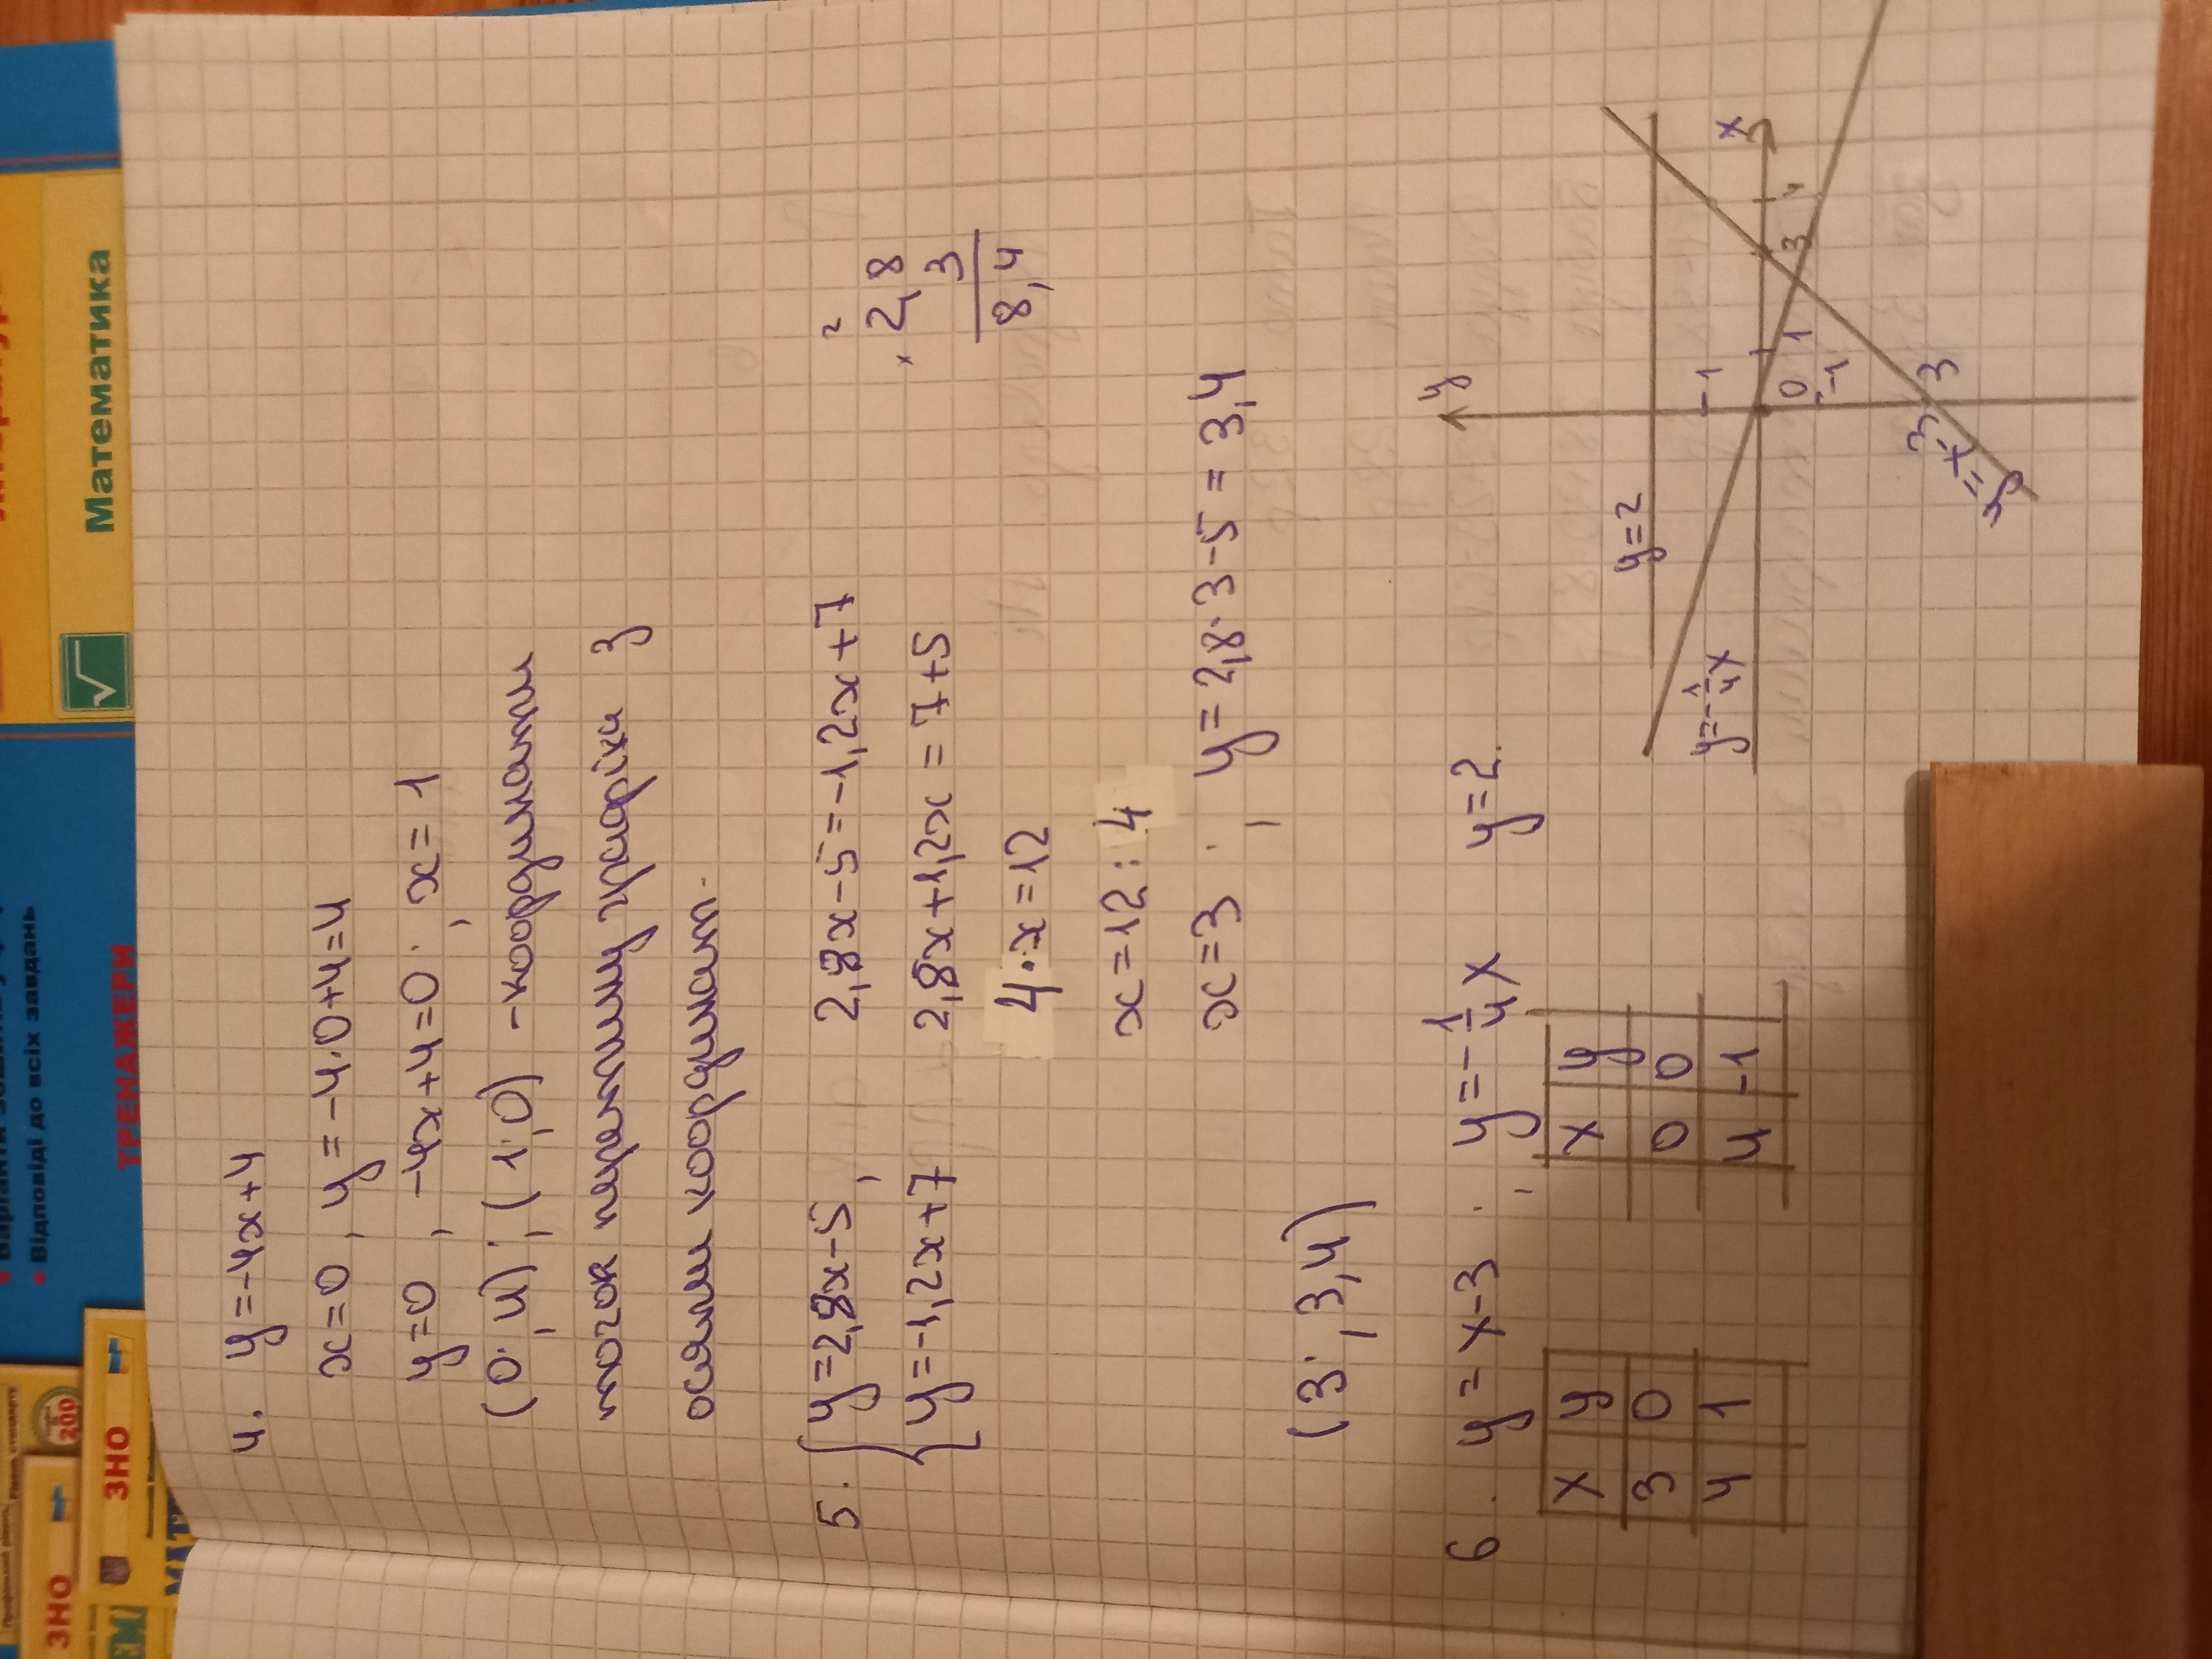 4. y=-4x+4
x=0, y=-4·0+4=4
y=0, -4x+4=0; x=1
(0;4); (1;0) -координати
точок перетину графіка з
осями координат.
5. { y=2,8x-5,
y=-1,2x+7
2,8x-5=-1,2x+7
2,8x+1,2x=7+5
4·x=12
x=12:4
x=3; y=2,8·3-5=3,4
2
× 2,8
3
8,4
(3; 3,4)
6. y=x-3; y=-1/4x y=2.
x y
3 0
4 1
x y
0 0
4 -1
y
x
y=2
y=-1/4x
y=x-3
1
0
1
-1
3
4
-3
3
Математика
ТРЕНАЖЕРИ
Відповіді до всіх завдань
ЗНО
ЗНО
200